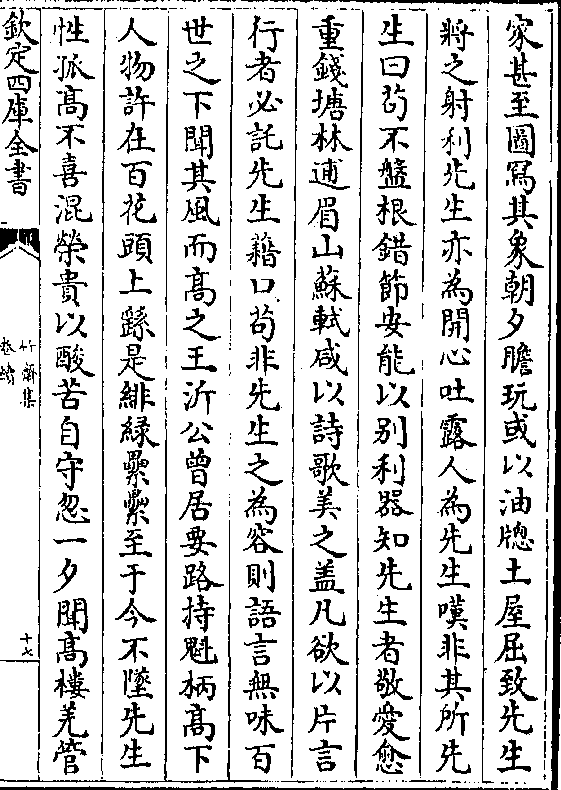 家甚至圖寫其象朝夕瞻玩或以油牕土屋屈致先生
將之射利先生亦為開心吐露人為先生嘆非其所先
生曰茍不盤根錯節安能以别利器知先生者敬愛愈
重錢塘林逋眉山蘇軾咸以詩歌美之蓋凡欲以片言
行者必託先生藉口茍非先生之為容則語言無味百
世之下聞其風而高之王沂公曾居要路持魁柄高下
人物許在百花頭上繇是緋緑纍纍至于今不墜先生
性孤高不喜混榮貴以酸苦自守忽一夕聞高樓羌管
欽定四庫全書
竹齋集
卷續
十七